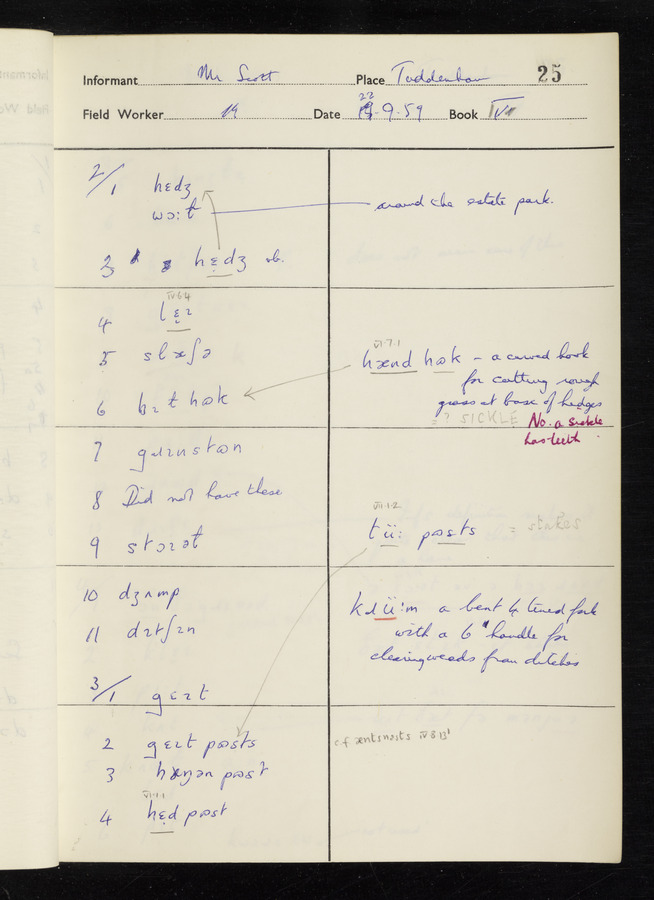 Informant Mr Scott Place Tuddenham 25
Field Worker Date 22.9.59 Book IV
2/1 hɛdʒ
wɔ:t around the estate park.
3 hɛdʒ sb.
IV·6·4
4
5 slæʃə
VI·7·1
hænd hʊk - a curved hook
for cutting rough
6 bɪt hʊk
grass at base of hedges
= ? SICKLE No. a sickle
has teeth
7
8 Did not have these
VII·1·2
tü: posts = stakes
9
10 dʒʌmp
a bent 4 tined fork
11
with a 6" handle for
clearing weeds from ditches
3/1 gɛɪt
2 gɛɪt posts
c.f. IV 8 13
3
VI·1·1
4 hɛd post